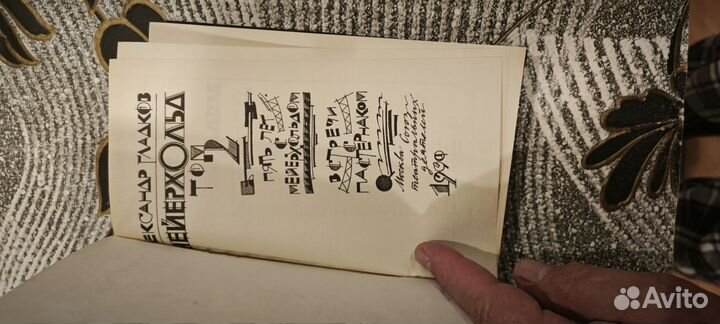 АЛЕКСАНДР ГЛАДКОВ
МЕЙЕРХОЛЬД
ТОМ
2
ПЯТЬ ЛЕТ
С
МЕЙЕРХОЛЬДОМ
ВСТРЕЧИ
С
ПАСТЕРНАКОМ
Москва Союз
театральных
деятелей
1990
Avito